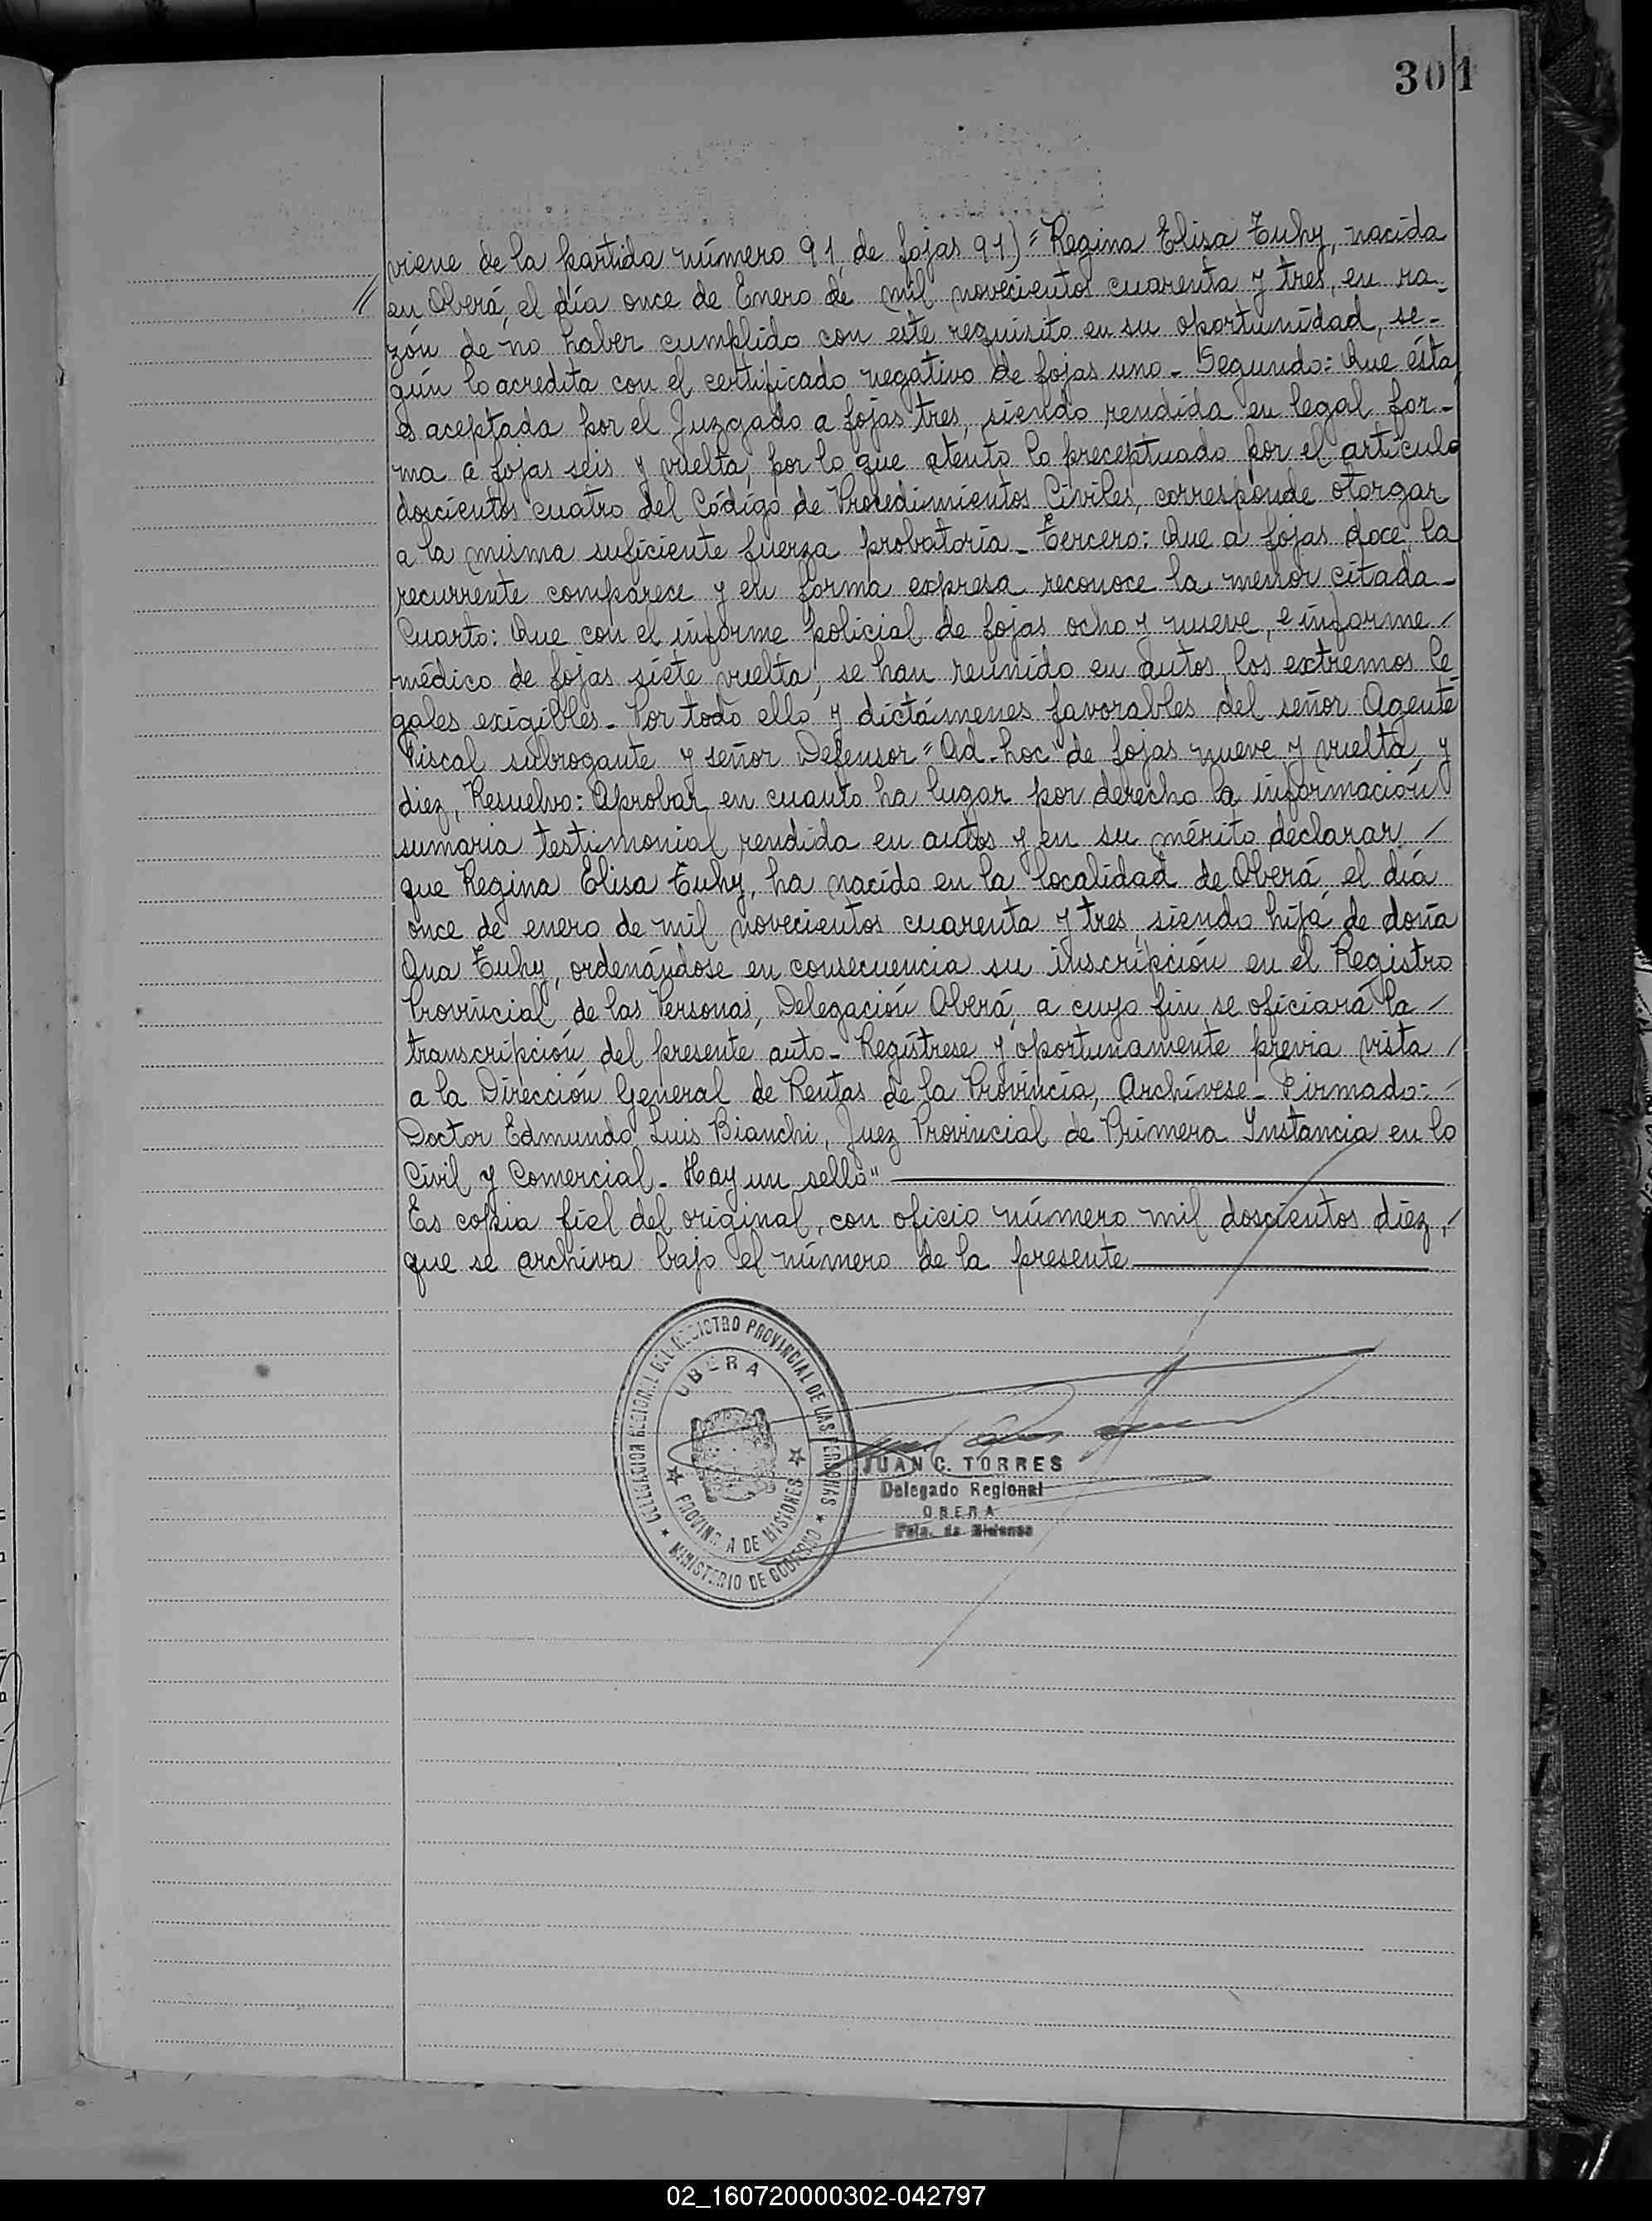 301
viene de la partida número 91, de fojas 91) = Regina Elisa Tuhy, nacida
// en Oberá, el día once de Enero de mil novecientos cuarenta y tres, en ra-
zón de no haber cumplido con este requisito en su oportunidad, se-
gún lo acredita con el certificado negativo de fojas uno - Segundo: Que ésta
es aceptada por el Juzgado a fojas tres, siendo rendida en legal for-
ma a fojas seis y vuelta, por lo que atento lo preceptuado por el artículo
doscientos cuatro del Código de Procedimientos Civiles, corresponde otorgar
a la misma suficiente fuerza probatoria - Tercero: Que a fojas doce, la
recurrente comparece y en forma expresa reconoce la menor citada -
Cuarto: Que con el informe policial de fojas ocho y nueve, e informe /
médico de fojas siete vuelta, se han reunido en autos los extremos le-
gales exigibles - Por todo ello y dictámenes favorables del señor Agente
Fiscal subrogante y señor Defensor "Ad-hoc" de fojas nueve y vuelta, y
diez, Resuelvo: Aprobar en cuanto ha lugar por derecho la información
sumaria testimonial rendida en autos y en su mérito declarar /
que Regina Elisa Tuhy, ha nacido en la localidad de Oberá, el día
once de enero de mil novecientos cuarenta y tres, siendo hija de doña
Ana Tuhy, ordenándose en consecuencia su inscripción en el Registro
Provincial de las Personas, Delegación Oberá, a cuyo fin se oficiará la /
transcripción del presente auto - Regístrese y oportunamente previa vista /
a la Dirección General de Rentas de la Provincia, Archívese - Firmado: /
Doctor Edmundo Luis Bianchi, Juez Provincial de Primera Instancia en lo
Civil y Comercial - Hay un sello"
Es copia fiel del original, con oficio número mil doscientos diez, /
que se archiva bajo el número de la presente
DELEGACION REGIONAL DEL REGISTRO PROVINCIAL DE LAS PERSONAS
OBERA
PROVINCIA DE MISIONES
MINISTERIO DE GOBIERNO
JUAN C. TORRES
Delegado Regional
OBERA
Pcia. de Misiones
02_160720000302-042797